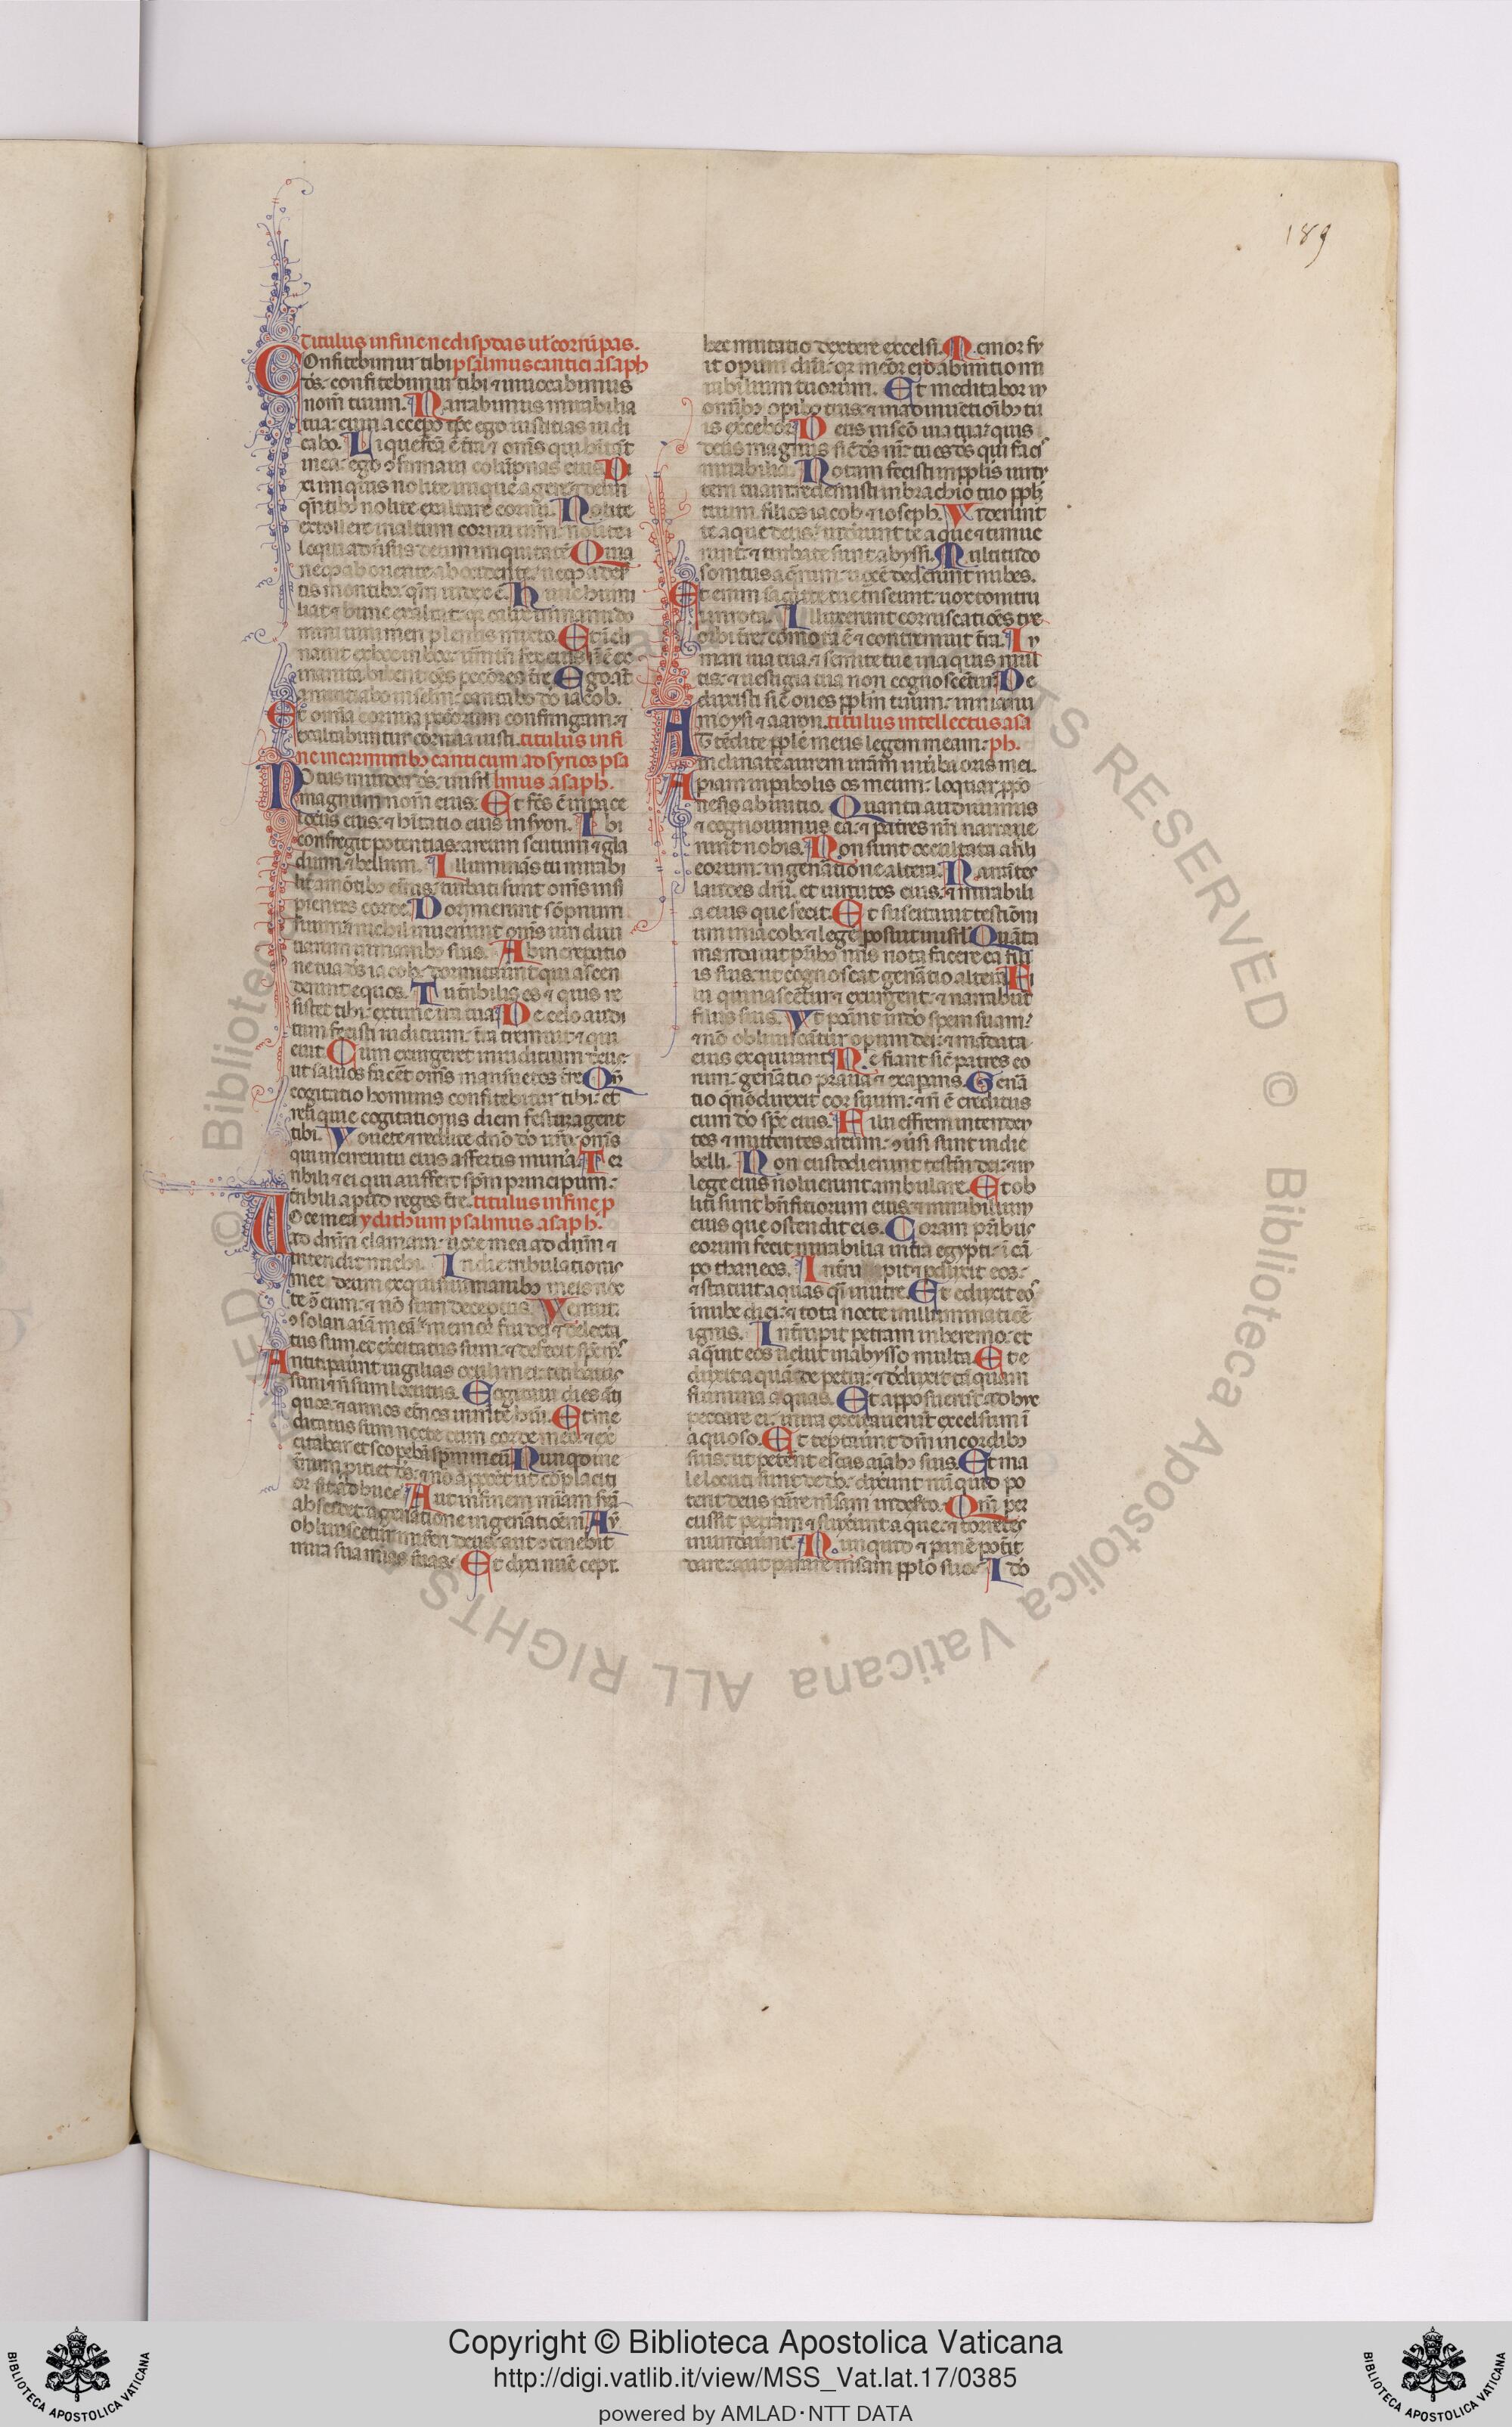 189
Titulus in fine ne disp̄das ut̄ corrūpas.
Confitebimur tibi psalmus cantici asaph
dš: confitebimur tibi ⁊ inuocabimus
nom̄ tuum. Narrabimus mirabilia
tua: cum accepo tp̄e ego iustitias iudi
cabo. Liquefcā ē tr̄a ⁊ om̄s qui hītāt
in ea: ego ꝯfirmaui colūpnas eius. Di
xi iniquis nolite inique agere: ⁊ delin
qn̄tibꝫ nolite exaltare cornu. Nolite
extollere in altum cornu ur̄m: nolite
loqui aduīsus deum iniquitatē. Quia
neqꝫ ab oriente: ab occidente: neqꝫ a des̄
tis montibꝫ: qm̄ iudex ē. Hunc humi
liat ⁊ hunc exaltat: qꝛ calix in manu do
mini uini meri plenus mixto. Et icli
nauit ex hoc in hoc: ur̄m̄ fex eius nō ē ex
inanita bibent om̄s pccōres tr̄e. Ego aūt
annuntiabo in sclm̄: cantabo dō iacob.
Et om̄ia cornua peccorum confringam: ⁊
exaltabuntur cornua iusti. titulus in fi
ne in carminibꝫ canticum ad syrios psa
Notus in iudea dš: in isrl̄ lmus asaph.
magnum nom̄ eius. Et fcs̄ ē in pace
locus eius: ⁊ hītatio eius in syon. Ibi
confregit potentias: arcum scutum ⁊ gla
dium: ⁊ bellum. Illuminās tu mirabi
lit̄ a mōtibꝫ etn̄is: turbati sunt om̄s insi
pientes corde. Dormierunt sōpnum
suum: ⁊ nichil inuenerunt om̄s uiri diui
tiarum in manibꝫ suis. Ab increpatio
ne tua dš iacob: dormitauerunt qui ascen
derunt equos. Tu tr̄ibilis es ⁊ quis re
sistet tibi: ex tunc ira tua. De celo audi
tum fecisti iudicium: tr̄a tremuit ⁊ qui
euit. Cum exurgeret in iudicium deus:
ut saluos facet̄ om̄s mansuetos tr̄e. Qm̄
cogitatio hominis confitebitur tibi: et
reliquie cogitationis diem festum agent
tibi. Vouete ⁊ reddite dn̄o dō ur̄o: om̄s
qui in circuitu eius affertis muna. Ter
ribili ⁊ ei qui auffert spm̄ principum:
tr̄ibili apud reges tr̄e. titulus in fine p
Voce mea ydithum psalmus asaph.
ad dn̄m clamaui: uoce mea ad dn̄m ⁊
intendit michi. In die tribulationis
mee deum exquisiui manibꝫ meis noc
te ꝯ eum: ⁊ nō sum deceptus. Renuit
ꝯsolari aīa mea: memor fui dei ⁊ delecta
tus sum: ⁊ exercitatus sum: ⁊ defecit spc̄ mš.
Anticipauerunt uigilias oculi mei: turbatus
sum ⁊ n̄ sum locutus. Cogitaui dies anti
quos: ⁊ annos etn̄os in mente habui. Et me
ditatus sum nocte cum corde meo: ⁊ exer
citabar et scopebā spm̄ meū. Nunqd in e
ternum proiciet dš: ⁊ nō apponet ut cōplaciti
or sit adhuc. Aut in finem miām suā
abscidet: a generatione in generationem. Aut
obliuiscetur misereri deus: aut ꝯtinebit
in ira sua mias suas. Et dixi nūc cepi:
hec mutatio dextere excelsi. Memor fu
it opum dn̄i: qꝛ memor ero ab initio mi
rabilium tuorum. Et meditabor in
omnibꝫ opibꝫ tuis: ⁊ in adinuētionibꝫ tu
is exercebor. Deus in scō uia tua: quis
deus magnus sic̄ dš nr̄: tu es dš qui facis
mirabilia. Notam fecisti in pplis uirtu
tem tuam: redemisti in brachio tuo pplm̄
tuum filios iacob ⁊ ioseph. Viderunt
te aque deus: uiderunt te aque ⁊ timue
runt: ⁊ turbate sunt abyssi. Multitudo
sonitus aquarum: uocē dederunt nubes.
Et enim sagitte tue transeunt: uox tonitrui
tui in rota. Illuxerunt corruscatiōes tue
orbi tr̄e: cōmota ē ⁊ contremuit tr̄a. In
mari uia tua: ⁊ semite tue in aquis mul
tis: ⁊ uestigia tua non cognoscentur. De
duxisti sic̄ oues pplm̄ tuum: in manu
moysi ⁊ aaron. titulus intellectus asa
Attendite pple meus legem meam: ph.
inclinate aurem ur̄am in uerba oris mei.
Apiam in pabolis os meum: loquar ppo
nes ab initio. Quanta audiuimus
⁊ cognouimus ea: ⁊ patres nr̄i narraue
runt nobis. Non sunt occultata a filiis
eorum: in generatione altera. Narrantes
laudes dn̄i et uirtutes eius: ⁊ mirabili
a eius que fecit. Et suscitauit testimoni
um in iacob: ⁊ legē posuit in isrl̄. Quāta
mandauit patribꝫ nr̄is nota facere ea fili
is suis: ut cognoscat generatio altera. Fi
lii qui nascentur ⁊ exurgent: ⁊ narrabunt
filiis suis. Vt ponāt in dō spem suam:
⁊ nō obliuiscātur operum dei: ⁊ mādata
eius exquirant. Ne fiant sic̄ patres eo
rum: generatio praua ⁊ exaspans. Genera
tio que nō direxit cor suum: ⁊ n̄ ē creditus
cum dō spc̄ eius. Filii effrem intenden
tes ⁊ mittentes arcum: ⁊uersi sunt in die
belli. Non custodierunt testm̄ dei: ⁊ in
lege eius noluerunt ambulare. Et ob
liti sunt bn̄ficiorum eius: ⁊ mirabilium
eius que ostendit eis. Coram patribus
eorum fecit mirabilia in tr̄a egypti: ī cā
po thaneos. Interrupit ⁊ pduxit eos:
⁊ statuit aquas qi in utre. Et eduxit eos
ī nube diei: ⁊ tota nocte in illuminatiōe
ignis. Interrupit petram in heremo: et
aquit eos uelut in abysso multa. Et e
duxit aquā de petra: ⁊ deduxit tāquam
flumina aquas. Et apposuerunt adhuc
peccare ei: in ira excitauerunt excelsum ī
aquoso. Et teptauerunt dm̄ in cordibꝫ
suis: ut peterent escas aīabꝫ suis. Et ma
le locuti sunt de dō: dixerunt nūquid po
terit deus parare mēsam in deserto. Qm̄ per
cussit petram ⁊ fluxerunt aque: ⁊ torrētes
inundauerunt. Nunquid ⁊ panē poterit
dare: aut parare mēsam pplo suo. Ido
© Biblioteca Apostolica Vaticana ALL RIGHTS RESERVED
Copyright © Biblioteca Apostolica Vaticana
http://digi.vatlib.it/view/MSS_Vat.lat.17/0385
powered by AMLAD·NTT DATA
BIBLIOTECA APOSTOLICA VATICANA
BIBLIOTECA APOSTOLICA VATICANA